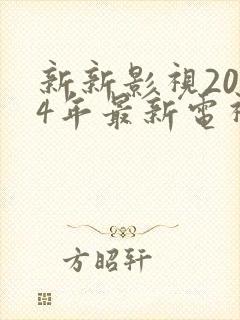 新新影視20
4年最新電
方昭轩